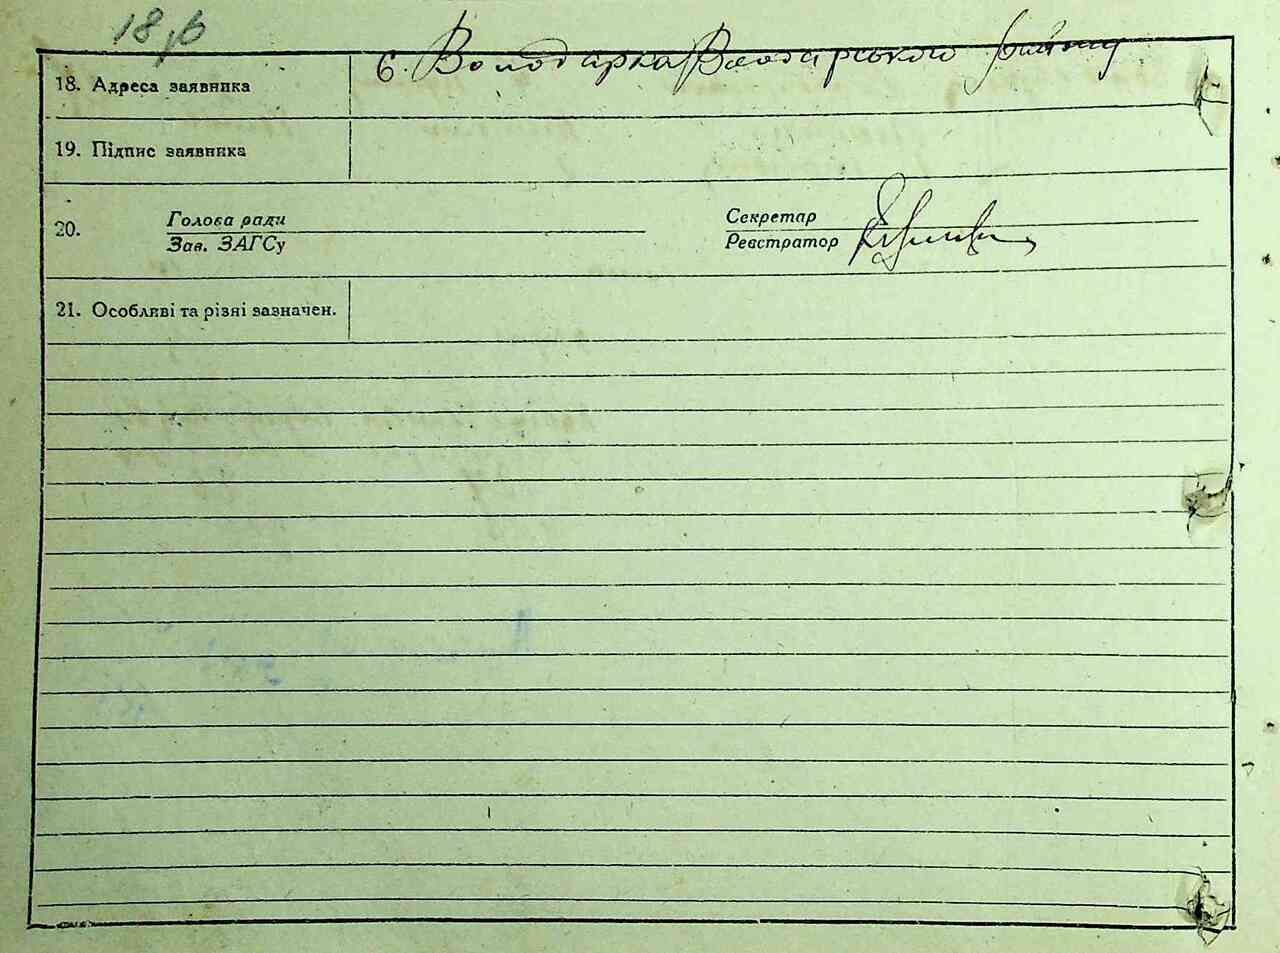 18 зв
с. Володарка Володарського району
18. Адреса заявника
19. Підпис заявника
20. Голова ради
Зав. ЗАГСу
Секретар
Реєстратор
21. Особливі та різні зазначен.